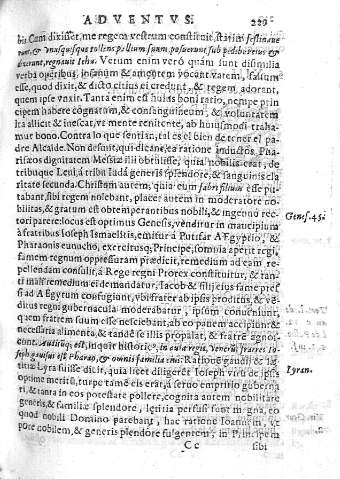 ADVENTVS. 229
bis. Cum dixisset, me regem vestrum constituit, statim festina
runt, & vnusquisque tollens pallium suum posuerunt sub pedibus eius &
dixerunt, regnauit Iehu. Verum enim verò quàm sunt dissimilia
verba operibus, insanum & amentem vocant verem, falsum
esse, quod dixit, & dicto citius ei credunt, & regem adorant,
quem ipse vnxit. Tanta enim est huius boni ratio, nempe prin
cipem habere cognatum, & consanguineum, & voluntatem
ita allicit & inescat, vt mente renitente, ab huiusmodi traha-
mur bono. Contra lo que sentian, tal es el bien de tener el pa-
dre Alcalde. Non desunt, qui dicant, ea ratione inductos Pha-
risæos dignitatem Messiæ illi obtulisse, quia nobilis erat, de
tribu Leui, à tribu Iuda generis splendore, & sanguinis cla
ritate secunda. Christum autem, quia eum fabri filium esse pu-
tabant, sibi regem nolebant, placet autem in moderatore no
bilitas, & gratum est obtemperantibus nobili, & ingenuo rec-
tori parere: locus est optimus Genesis, venditur in mancipium
à fratribus Ioseph Ismaelitis, emitur à Putifar AEgyptio, &
Pharaonis eunucho, exercitusq; Principe, somnia aperit regi,
famem regnum oppressuram prædicit, remedium ad eam re-
pellendam consulit, à Rege regni Prorex constituitur, & tan-
ti mali remedium ei demandatur, Iacob & filij eius fame pres
si ad AEgytum confugiunt, vbi frater ab ipsis proditus, & ve-
ditus regni gubernacula moderabatur, ipsum conueniunt,
quem fratrem suum esse nesciebant, ab eo panem accipiunt: &
necessaria alimenta, & tandē se illis propalat, & fratre agnoi-
cunt. Auditū; est, inquit historic<sup></sup>, in aula regis, Venerūt fratres Io-
seph gauisus est Pharao, & omnis familia eius: Ratione gaudij & læ-
titiæ Lyra fuisse dicit, quia licet diligeret Ioseph virū de ipsis
optime meritū, turpe tamē eis erat, à seruo emptitio guberna
ri, & tantum in eos potestate pollere, cognita autem nobilitate
generis, & familiæ splendore, lętitia persusi sunt magna, eo
quod nobili Domino parebant, hac ratione Ioannem, vt
pote nobilem, & generis splendore fulgentem, in Principem
Cc sibi
Genes. 45.
Lyran.